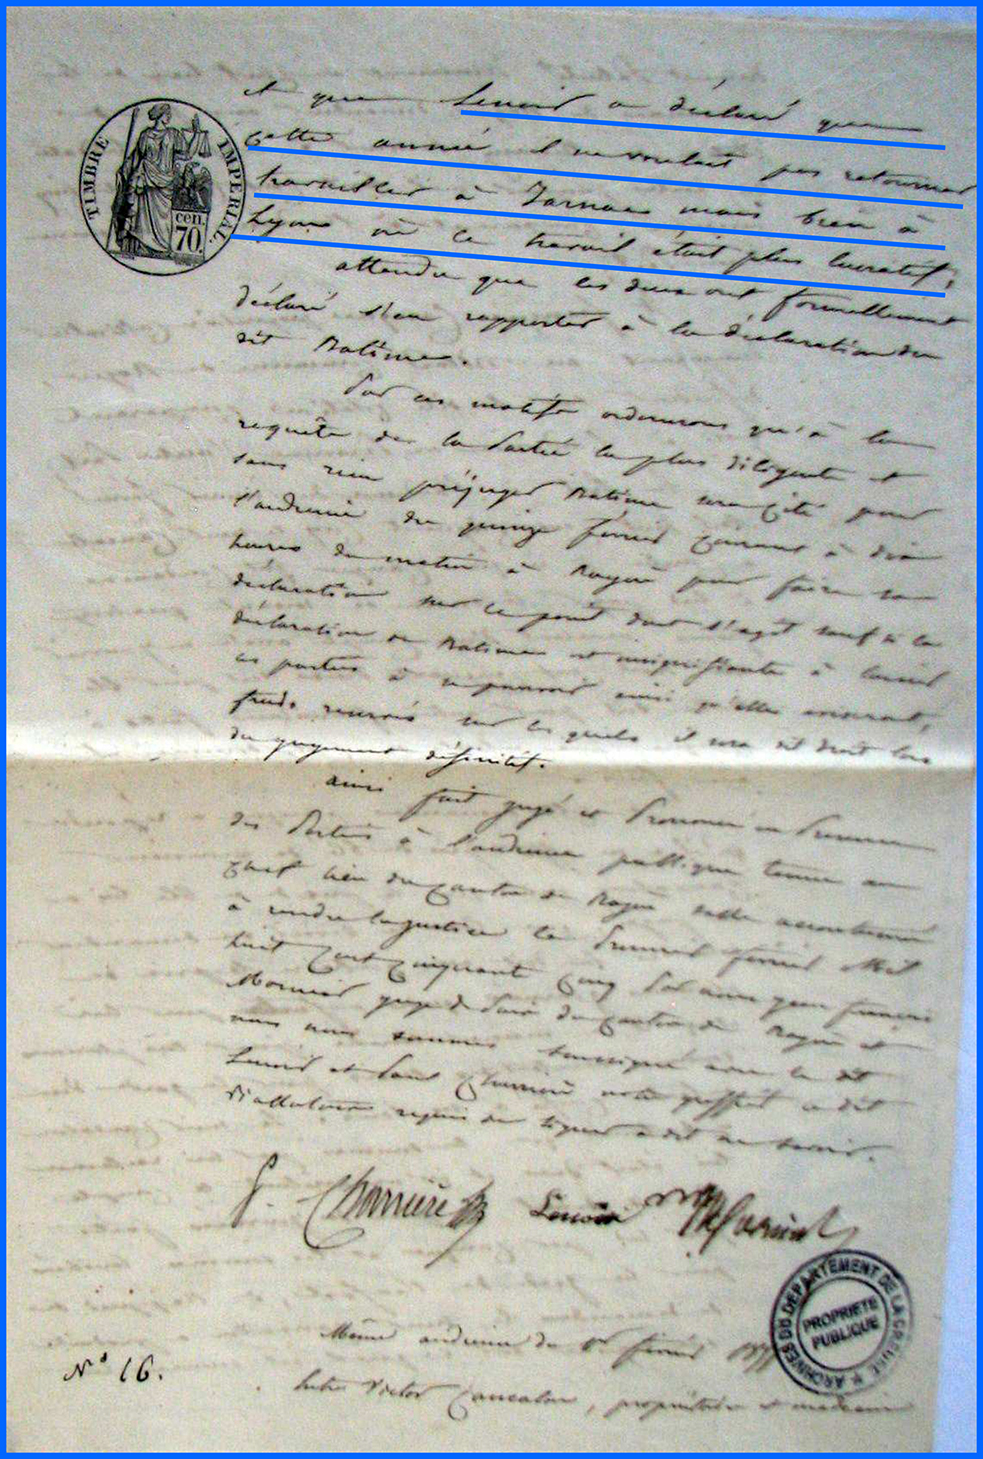 TIMBRE IMPERIAL.
cen.
70.
et que Lenoir a déclaré que
cette année il ne voulait pas retourner
travailler à Jarnac mais bien à
Lyon où le travail était plus lucratif;
attendu que les deux ont formellement
déclaré s'en rapporter à la déclaration du
dit Batime.
Par ces motifs ordonnons qu'à la
requête de la Partie la plus diligente et
sans rien préjuger Batime sera cité pour
l'audience du quinze février courant à dix
heures du matin à Royère pour faire sa
déclaration sur le point dont s'agit sauf à la
déclaration de Batime et insignifiante à
les parties à se pourvoir ainsi qu'elles
frais réservés sur lesquels il sera dit droit lors
du jugement définitif.
ainsi fait jugé et Prononcé en Présence
des Parties à l'audience publique tenue au
chef lieu du canton de Royère salle accoutumée
à rendre la justice le Premier février Mil
huit cent cinquante cinq Par nous
juge de Paix du canton de Royère et
nous nous sommes soussigné avec le dit
Lenoir et Paul Charrière notre greffier le dit
Vialatoux requis de signer a dit ne savoir.
P. Charrière Lenoir
Même audience du 1er février 1855
Nº 16.
Entre Victor Cancalon, propriétaire et médecin
ARCHIVES DU DÉPARTEMENT DE LA CREUSE
PROPRIÉTÉ
PUBLIQUE